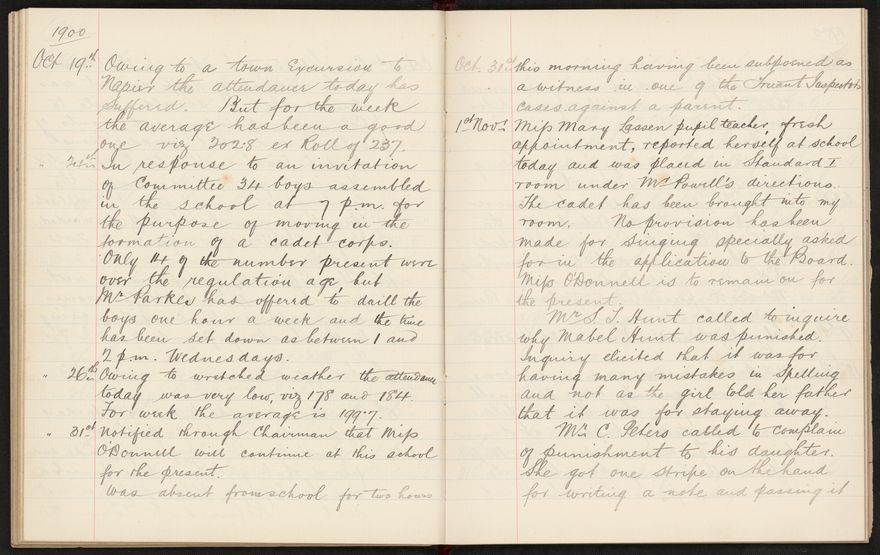 1900
Oct 19th Owing to a town Excursion to
Napier the attendance today has
suffered. But for the week
the average has been a good
one viz 202.8 ex Roll of 237.
" In response to an invitation
of Committee 34 boys assembled
in the school at 7 p.m. for
the purpose of moving in the
formation of a cadet corps.
Only 14 of the number present were
over the regulation age, but
Mr Parkes has offered to drill the
boys one hour a week and the time
has been set down as between 1 and
2 p.m. Wednesdays.
" 26th Owing to wretched weather the attendance
today was very low, viz 178 and 184.
For week the average is 199.7.
" 31st Notified through Chairman that Miss
O'Donnell will continue at this school
for the present.
Was absent from school for two hours
Oct. 31st this morning having been subpoened as
a witness in one of the Truant Inspector's
cases against a parent.
1st Nov. Miss Mary Lassen pupil teacher, fresh
appointment, reported herself at school
today and was placed in Standard I
room under Mr Powell's directions.
The cadet has been brought into my
room. No provision has been
made for Singing specially asked
for in the application to the Board.
Miss O'Donnell is to remain on for
the present.
Mr S. J. Hunt called to inquire
why Mabel Hunt was punished.
Inquiry elicited that it was for
having many mistakes in Spelling
and not as the girl told her father
that it was for staying away.
Mr C. Peters called to complain
of punishment to his daughter.
She got one stripe on the hand
for writing a note and passing it